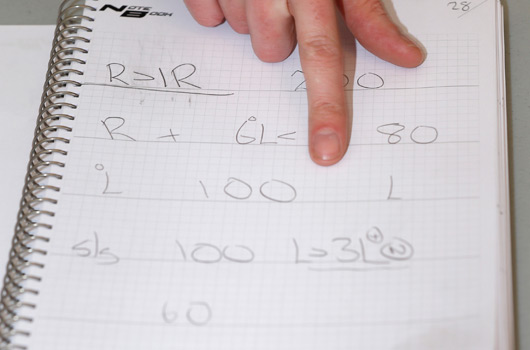 NOTE BOOK
28
R>1R 200
R + GL< 80
L 100 L
s/s 100 L>3L+N
60